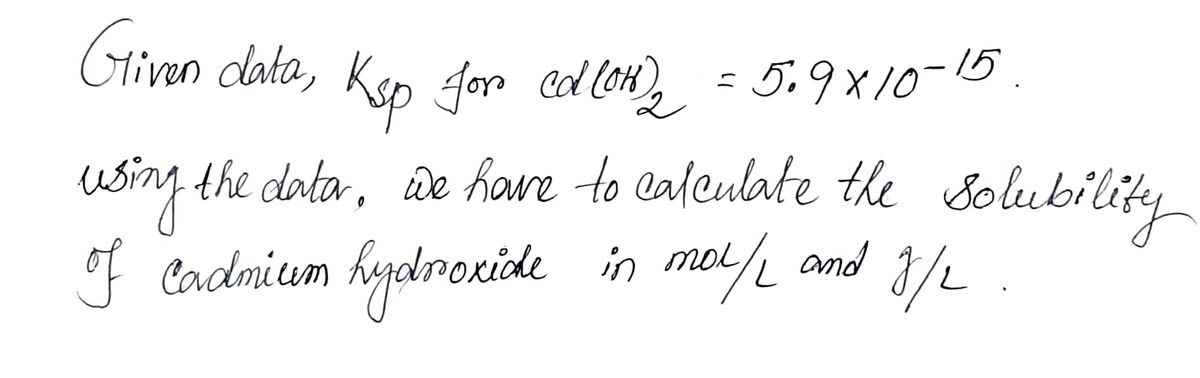 Given data, Ksp for cd(OH)2 = 5.9 x 10-15.
using the data, we have to calculate the solubility
of cadmium hydroxide in mol/L and g/L.